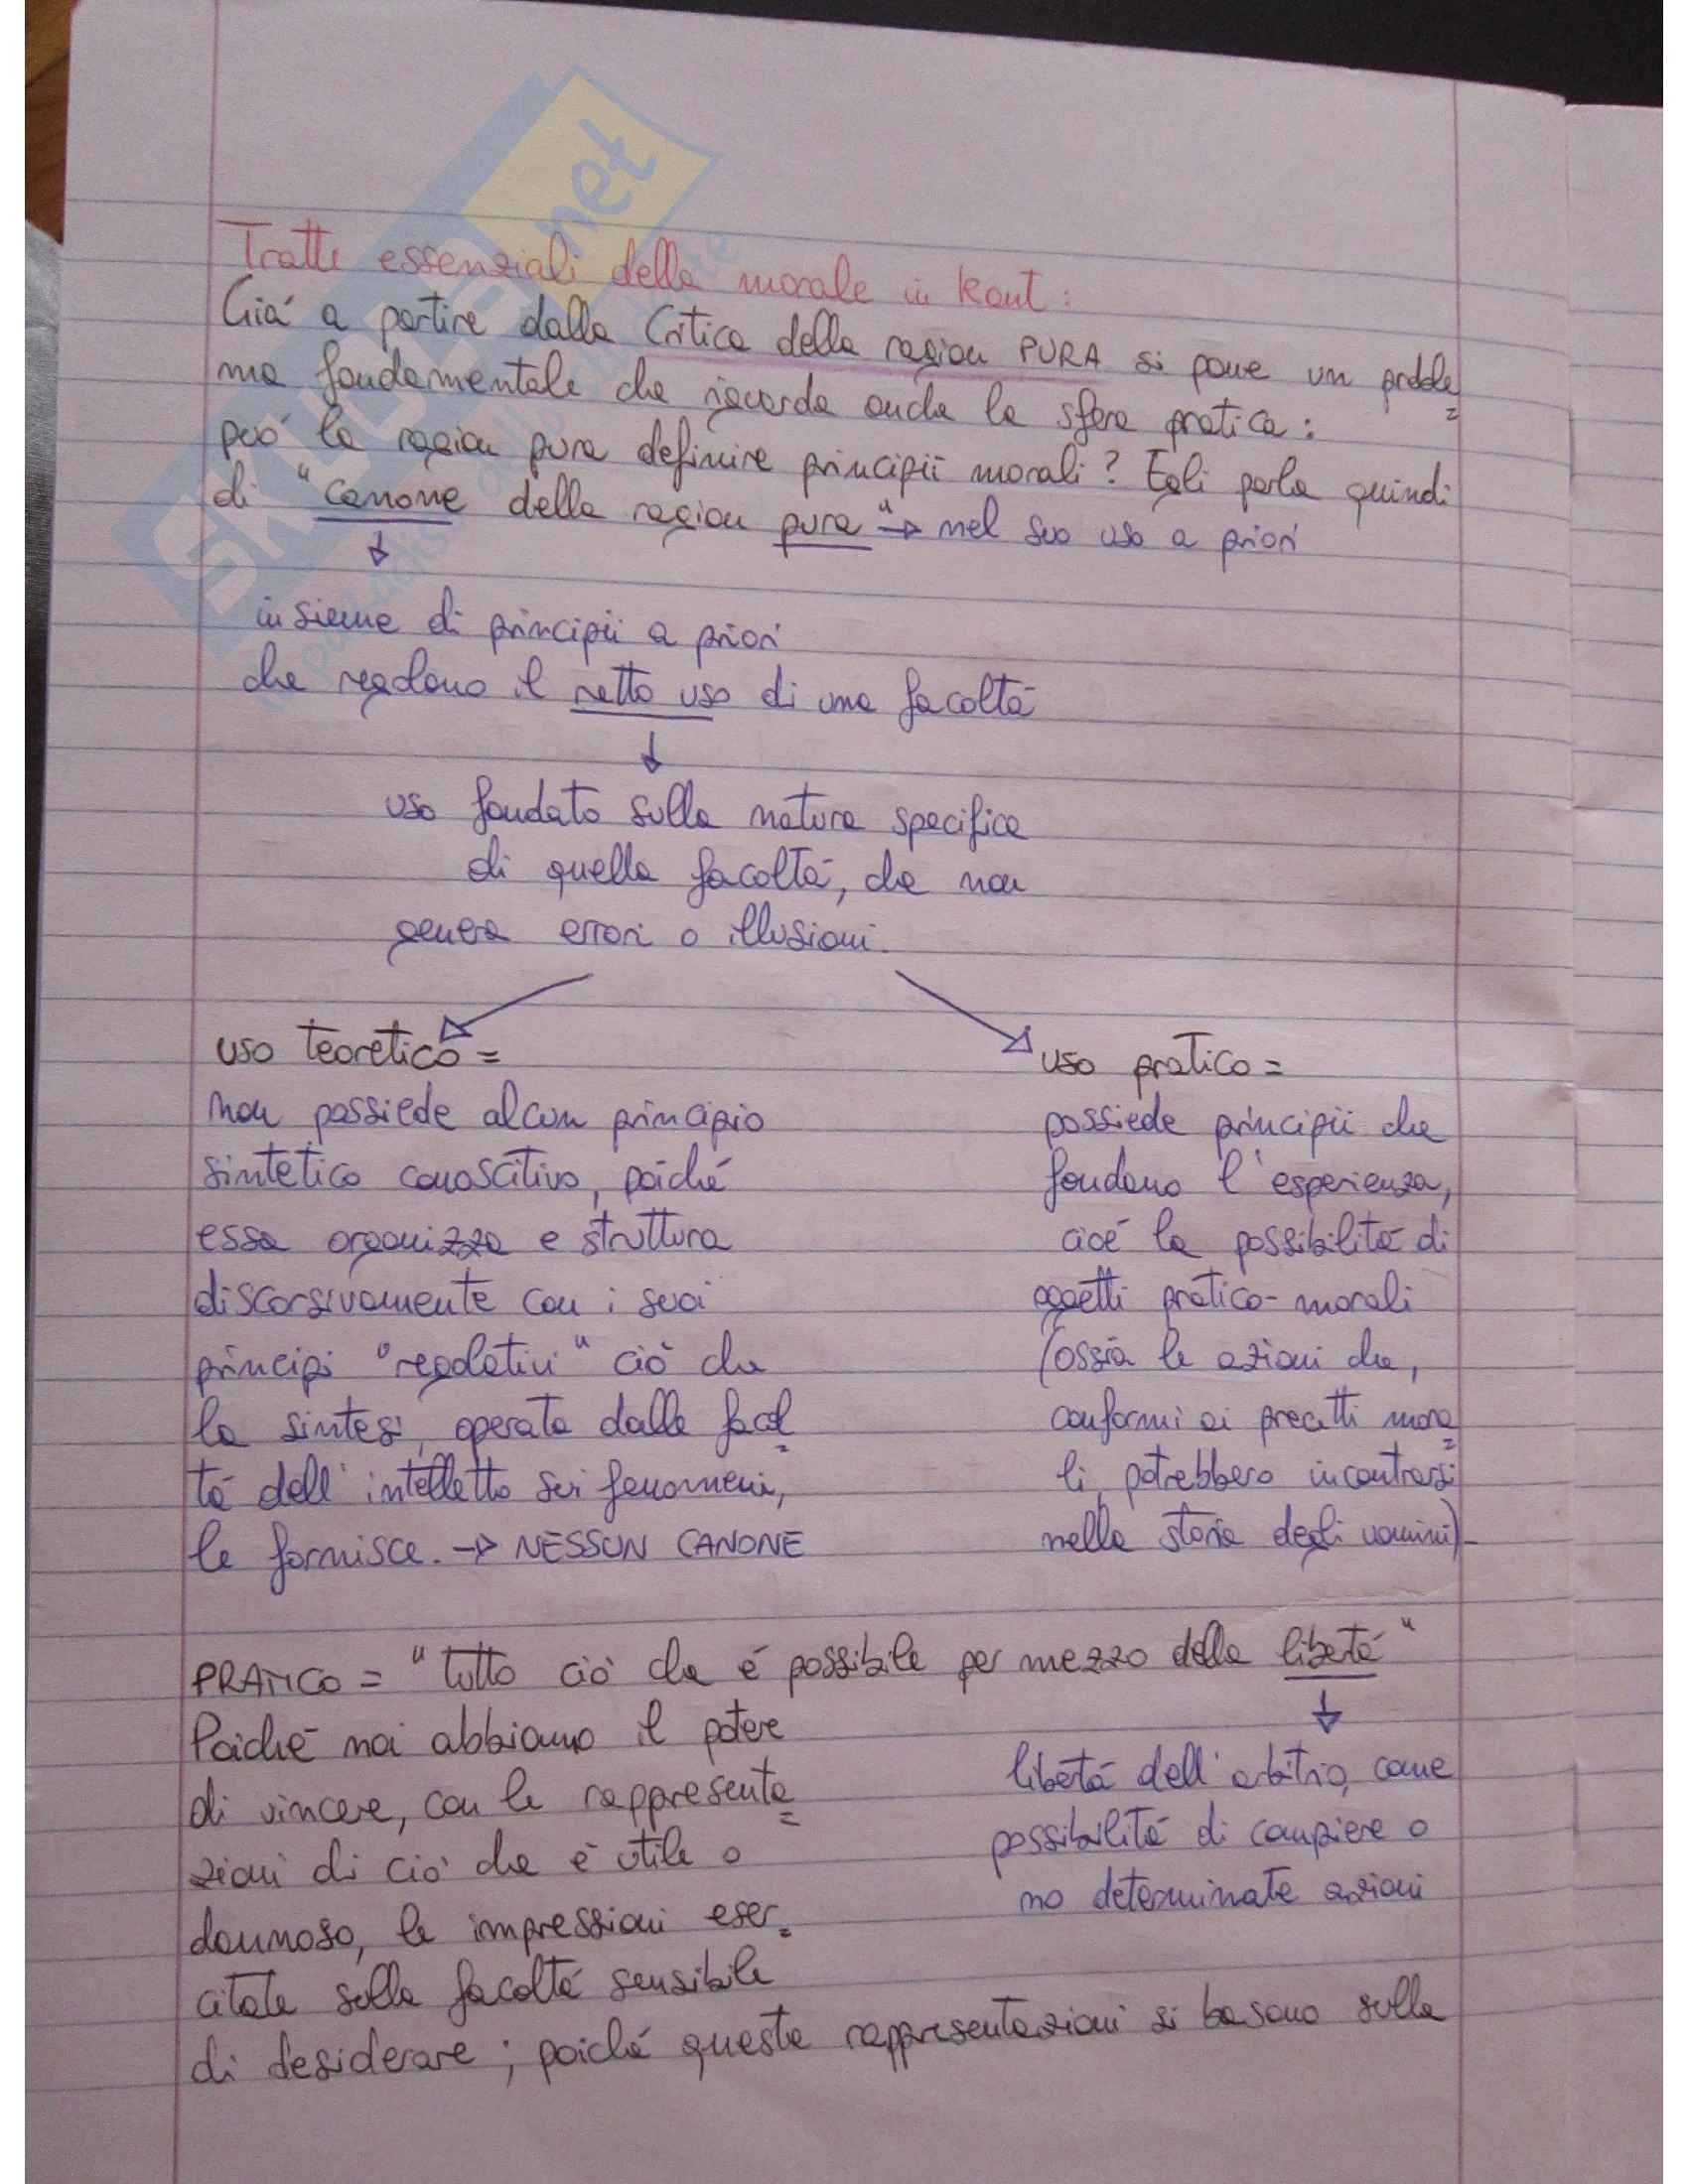 Tratti essenziali della morale in Kant:
Già a partire dalla Critica della ragion PURA si pone un proble
ma fondamentale che riguarda anche la sfera pratica:
può la ragion pura definire principii morali? Egli parla quindi
di "canone della ragion pura" → nel suo uso a priori
↓
insieme di principii a priori
che regolano il retto uso di una facoltà
↓
uso fondato sulla natura specifica
di quella facoltà, che non
genera errori o illusioni.
uso teoretico =
non possiede alcun principio
sintetico conoscitivo, poiché
essa organizza e struttura
discorsivamente con i suoi
principi "regolativi" ciò che
la sintesi, operata dalla facol
tà dell'intelletto sui fenomeni,
le fornisce. → NESSUN CANONE
uso pratico =
possiede principii che
fondano l'esperienza,
cioè la possibilità di
oggetti pratico-morali
(ossia le azioni che,
conformi ai precetti mora
li, potrebbero incontrarsi
nella storia degli uomini)
PRATICO = "tutto ciò che è possibile per mezzo della libertà"
Poiché noi abbiamo il potere
di vincere, con le rappresenta
zioni di ciò che è utile o
dannoso, le impressioni eser
citate sulla facoltà sensibile
di desiderare; poiché queste rappresentazioni si basano sulla
↓
libertà dell'arbitrio, come
possibilità di compiere o
no determinate azioni
SKUOLA.net